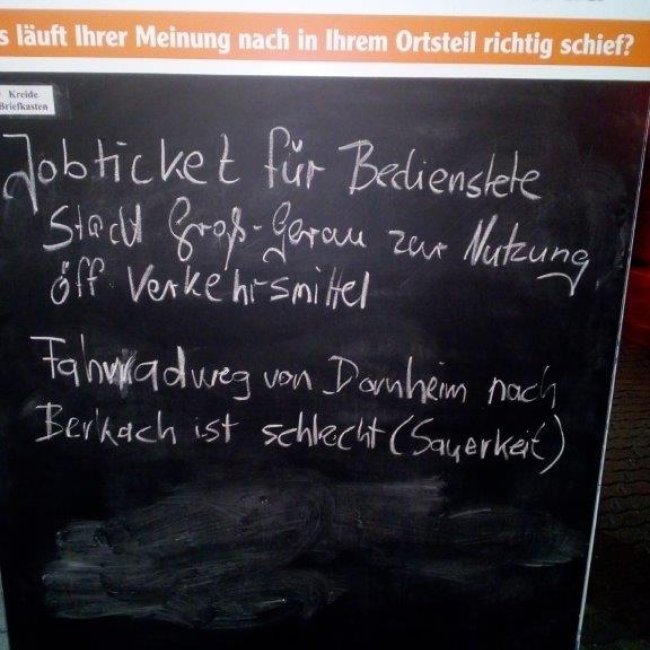 s läuft Ihrer Meinung nach in Ihrem Ortsteil richtig schief?
Kreide
Briefkasten
Jobticket für Bedienstete
Stadt Groß-Gerau zur Nutzung
öff Verkehrsmittel
Fahrradweg von Dornheim nach
Berkach ist schlecht (Sauerkeit)